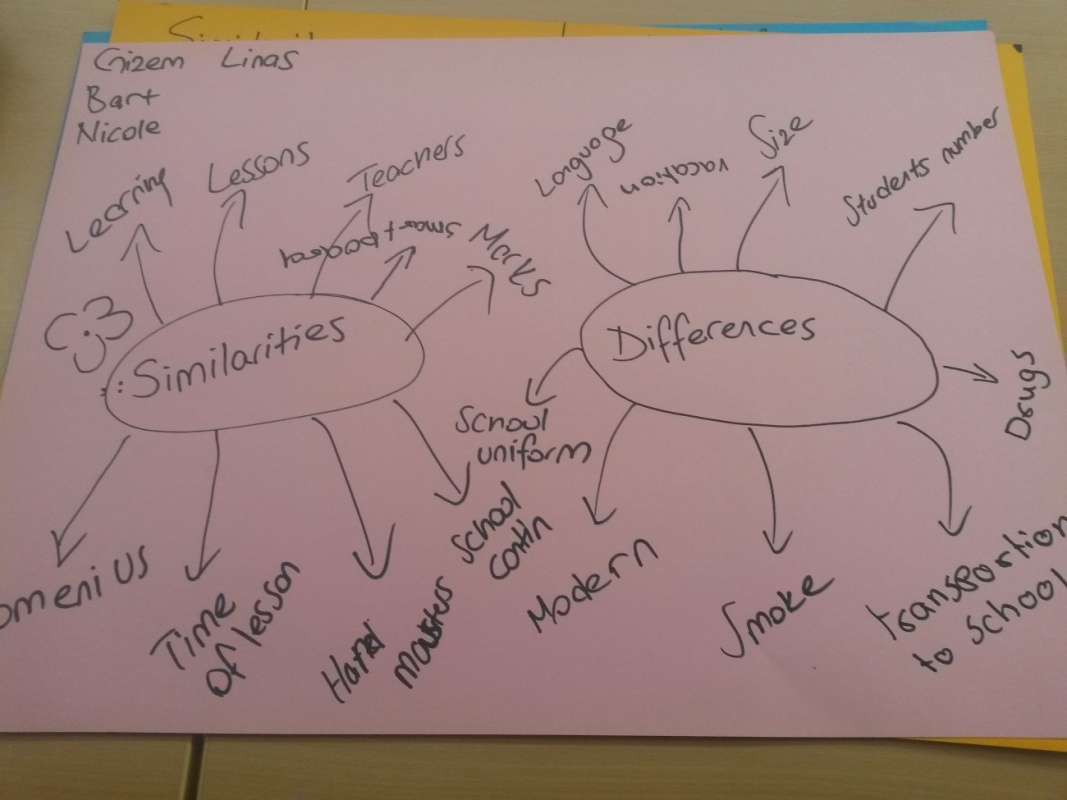 Gizem Linas
Bart
Nicole
Learning
Lessons
Teachers
smart
Marks
Similarities
omenius
Time
of lesson
School
Language
vacation
Size
Students number
Differences
Drugs
School
uniform
Modern
Smoke
transportion
to school